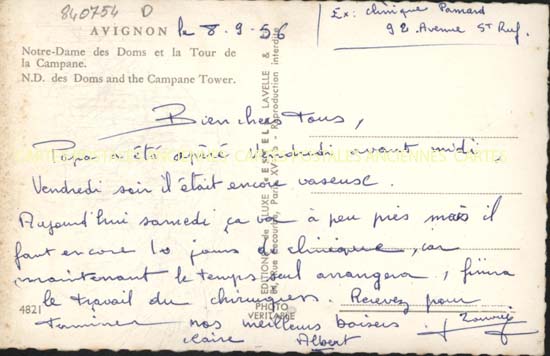 840754 D
AVIGNON le 8-9-56
Ex: clinique Pamard
92 Avenue St Ruf.
Notre-Dame des Doms et la Tour de
la Campane.
N.D. des Doms and the Campane Tower.
Bien chers Tous,
Papa a été opéré Vendredi avant midi,
Vendredi soir il était encore vaseux.
Aujourd'hui samedi ça va à peu près mais il
faut encore 10 jours de clinique, car
maintenant le temps seul arrangera, finira
le travail du chirurgien. Recevez pour
terminer nos meilleurs baisers.
Claire Albert
4821
PHOTO
VERITABLE
EDITIONS de LUXE "ESTEL" LAVELLE &
Rue Lecourbe, Paris XV - Reproduction interdite
CARTES POSTALES ANCIENNES CARTES